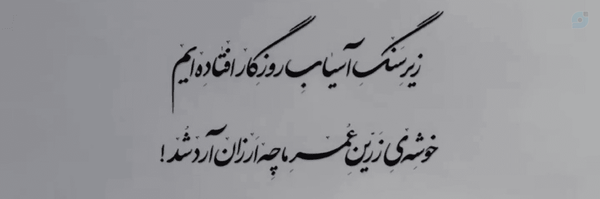 زیرِ سنگِ آسیابِ روزگار افتاده‌ایم
خوشه‌یِ زرینِ عُمرِ ما چه اَرزان آرد شُد!